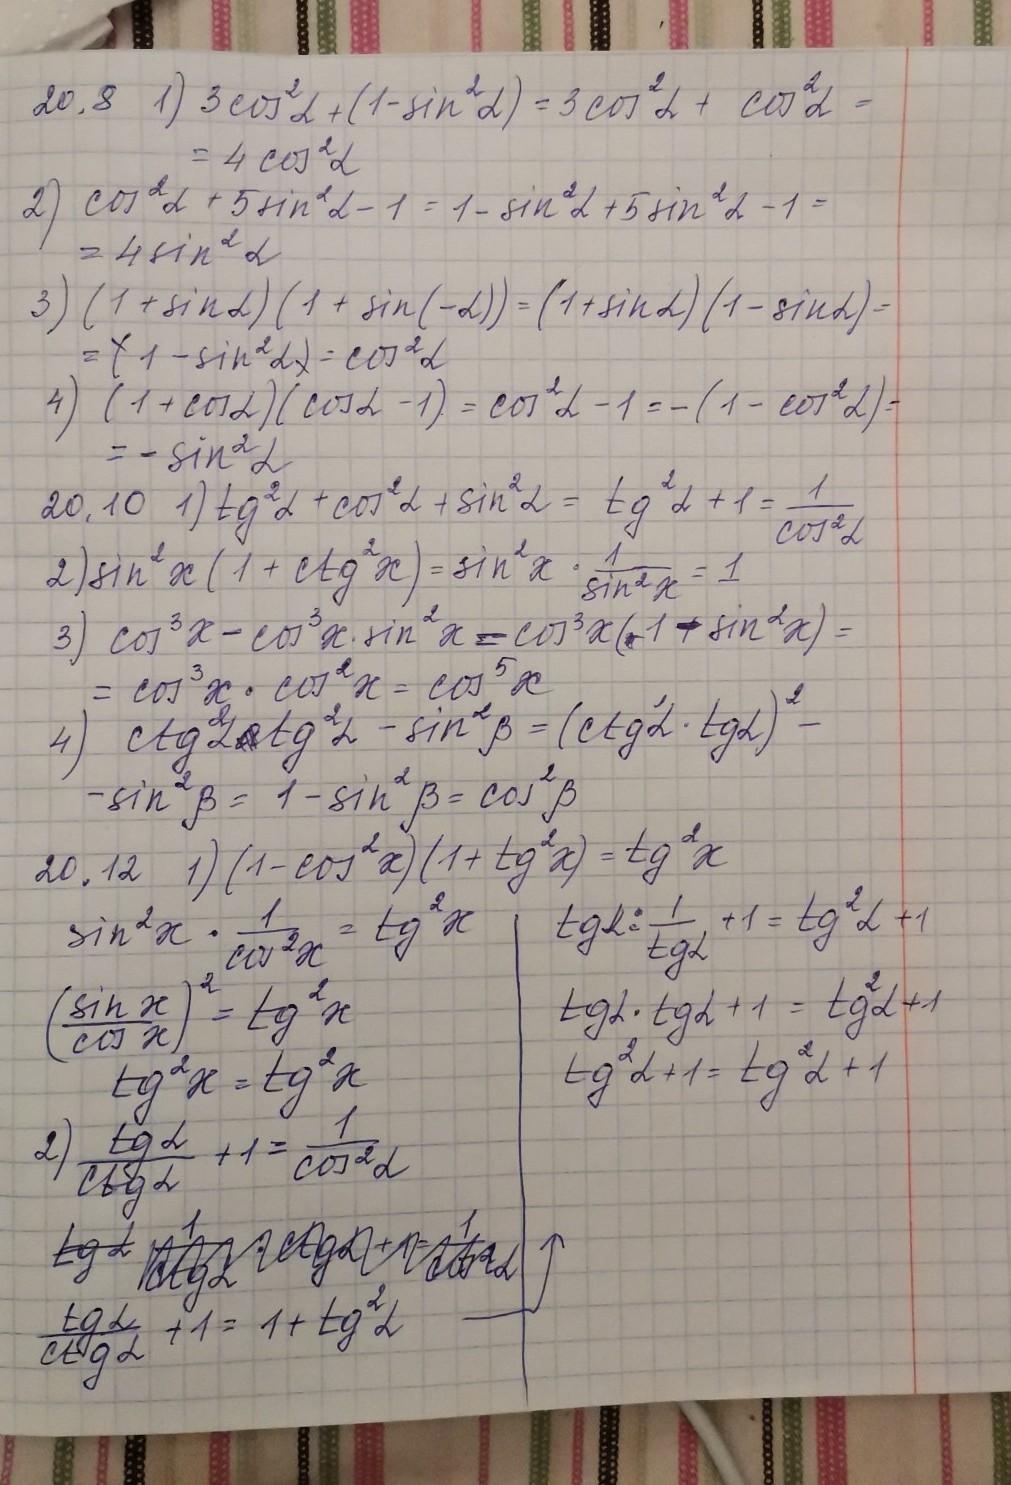 20.8 1) 3cos²α+(1-sin²α)=3cos²α+ cos²α=
=4cos²α
2) cos²α+5sin²α-1=1-sin²α+5sin²α-1=
=4sin²α
3) (1+sinα)(1+sin(-α))=(1+sinα)(1-sinα)=
=(1-sin²α)=cos²α
4) (1+cosα)(cosα-1)=cos²α-1=-(1-cos²α)=
=-sin²α
20.10 1) tg²α+cos²α+sin²α= tg²α+1=1/cos²α
2) sin²x(1+ctg²x)=sin²x·1/sin²x=1
3) cos³x-cos³x·sin²x=cos³x(1-sin²x)=
=cos³x·cos²x=cos⁵x
4) ctg²α·tg²α-sin²β=(ctgα·tgα)²-
-sin²β=1-sin²β=cos²β
20.12 1) (1-cos²x)(1+tg²x)=tg²x
sin²x·1/cos²x=tg²x
(sin x/cos x)²=tg²x
tg²x=tg²x
2) tgα/ctgα+1=1/cos²α
tgα/ctgα+1=1+tg²α
tgα:1/tgα+1=tg²α+1
tgα·tgα+1=tg²α+1
tg²α+1=tg²α+1